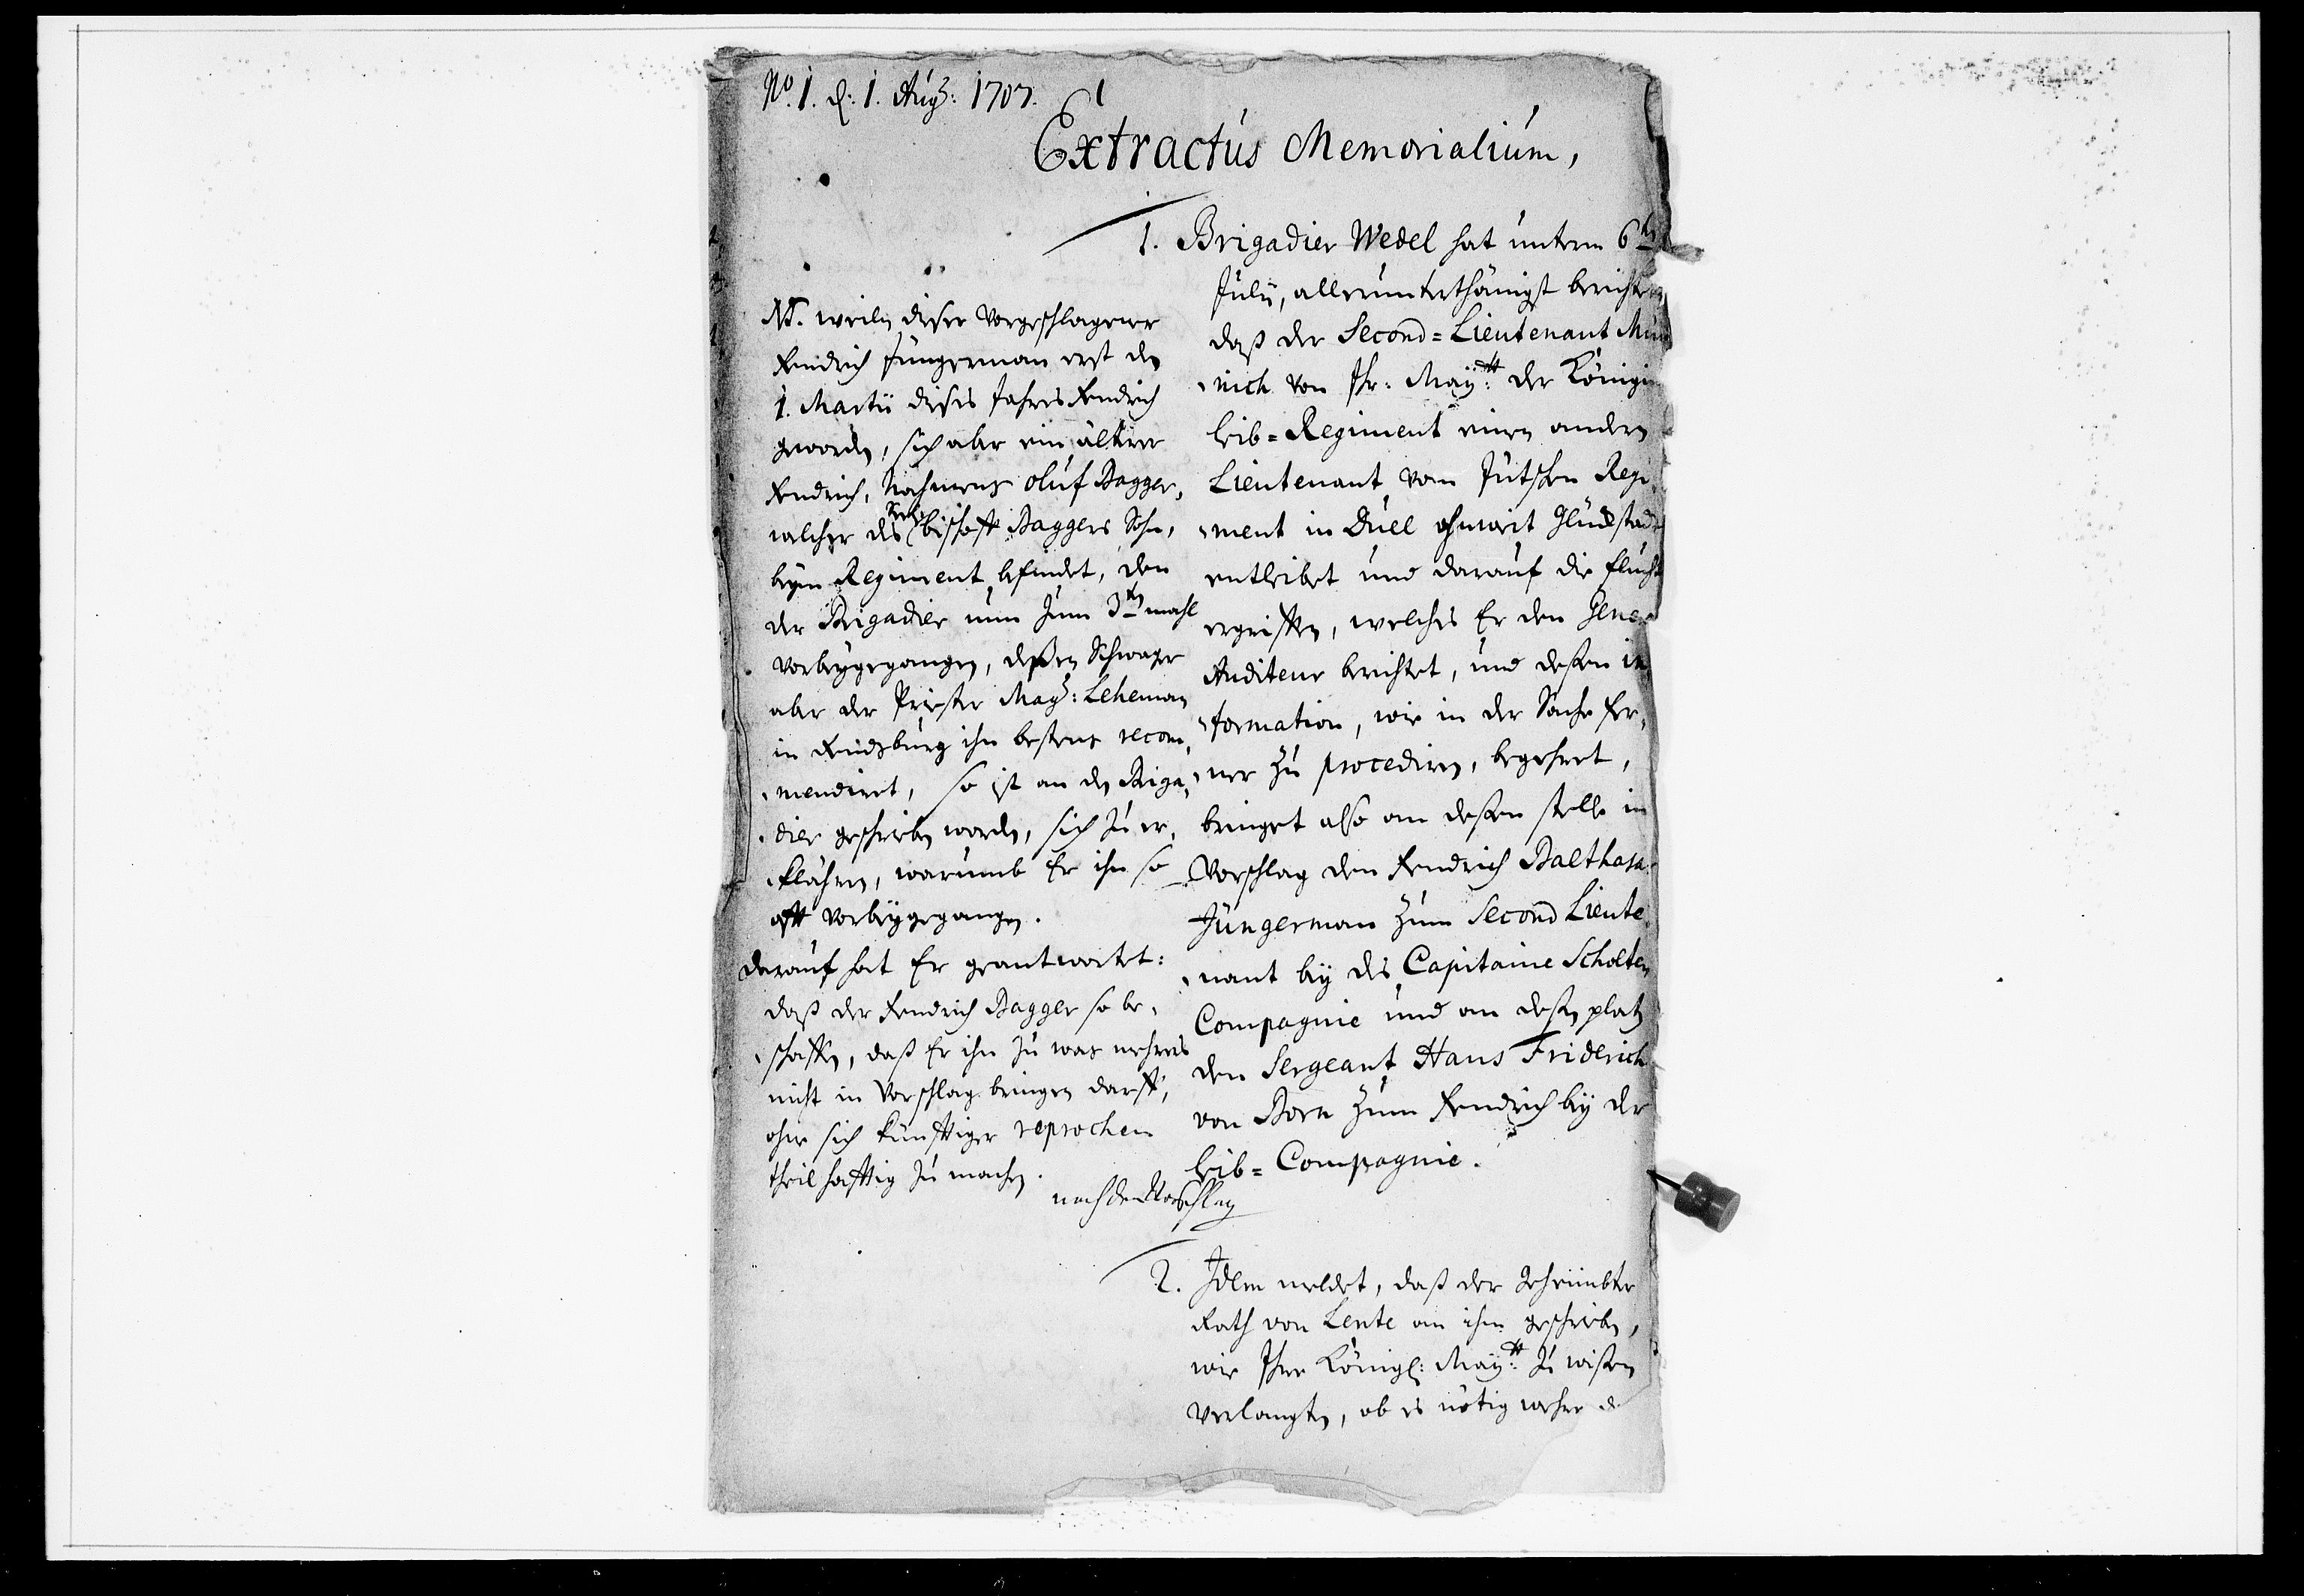 No. 1. d: 1. Aug: 1707.
1
Extractus Memorialium,
1. Brigadier Wedel hat unterm 6ten
July, allerunterthänigst berichtet,
daß der Second-Lieutenant Mün
nich von Ihr: May:tt der Königin
leib-Regiment einen andern
Lieutenant vom Jütschen Regi
ment in Duell ohnweit Glückstadt
entleibet und darauf die flucht
ergriffen, welches Er den Gener
Auditeur berichtet, und deßen in
formation, wie in der Sache fer,
ner zu procediren, begehret,
bringet also an deßen stelle in
Vorschlag den Fendrich Balthasar
Jüngerman zum Second Lieute
nant bey des Capitaine Scholten
Compagnie und an deßen platz
den Sergeant Hans Friderich
von Born zum Fendrich bey der
leib-Compagnie.
NB. weiln dieser Vorgeschlagener
Fendrich Jüngerman erst den
1. Martii dieses Jahres Fendrich
geworden, sich aber ein älterer
Fendrich, Nahmens Oluf Bagger,
welcher des bischoff Baggers Sohn,
beym Regiment befindet, den
der Brigadier nun zum 3ten mahl
vorbeygegangen, deßen Schwager
aber der Priester Mag: Leheman
in Rendsburg ihn bestens recom,
mendiret, so ist an den Briga,
dier geschrieben worden, sich zu er,
klähren, warumb Er ihn so
offt vorbeygegangen.
Darauf hat Er geantwortet:
daß der Fendrich Bagger so be,
schaffen, daß Er ihn zu was mehres
nicht in Vorschlag bringen darff,
ohne sich künfftiger reprochen
theilhafftig zu machen.
nach dem Vorschlag
2. Idem meldet, daß der Geheimbter
Rath von Lente an ihm geschrieben,
wie Ihre Königl: May:tt zu wißen
verlangten, ob es nötig wehre